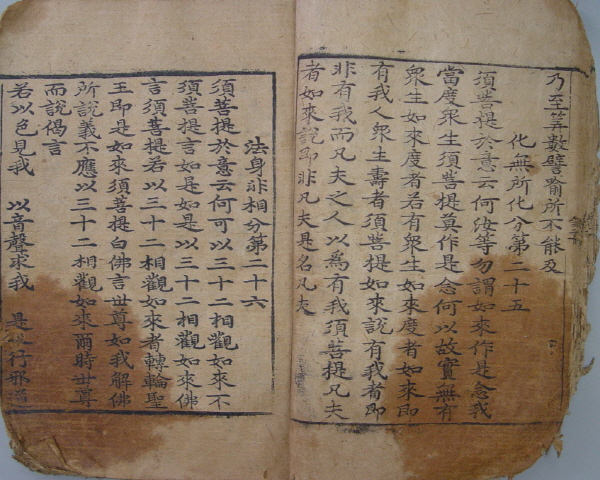 乃至筭數譬喻所不能及
化無所化分第二十五
須菩提於意云何汝等勿謂如來作是念我
當度眾生須菩提莫作是念何以故實無有
眾生如來度者若有眾生如來度者如來即
有我人眾生壽者須菩提如來說有我者即
非有我而凡夫之人以為有我須菩提凡夫
者如來說即非凡夫是名凡夫
法身非相分第二十六
須菩提於意云何可以三十二相觀如來不
須菩提言如是如是以三十二相觀如來佛
言須菩提若以三十二相觀如來者轉輪聖
王即是如來須菩提白佛言世尊如我解佛
所說義不應以三十二相觀如來爾時世尊
而說偈言
若以色見我 以音聲求我 是人行邪道